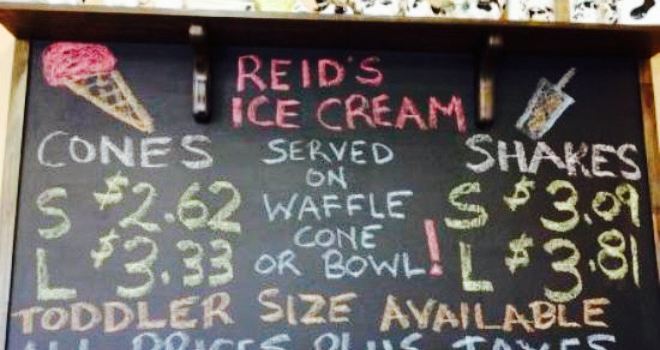 REID'S
ICE CREAM
CONES
S $2.62
L $3.33
SERVED
ON
WAFFLE
CONE
OR BOWL!
SHAKES
S $3.09
L $3.81
TODDLER SIZE AVAILABLE
ALL PRICES PLUS TAXES